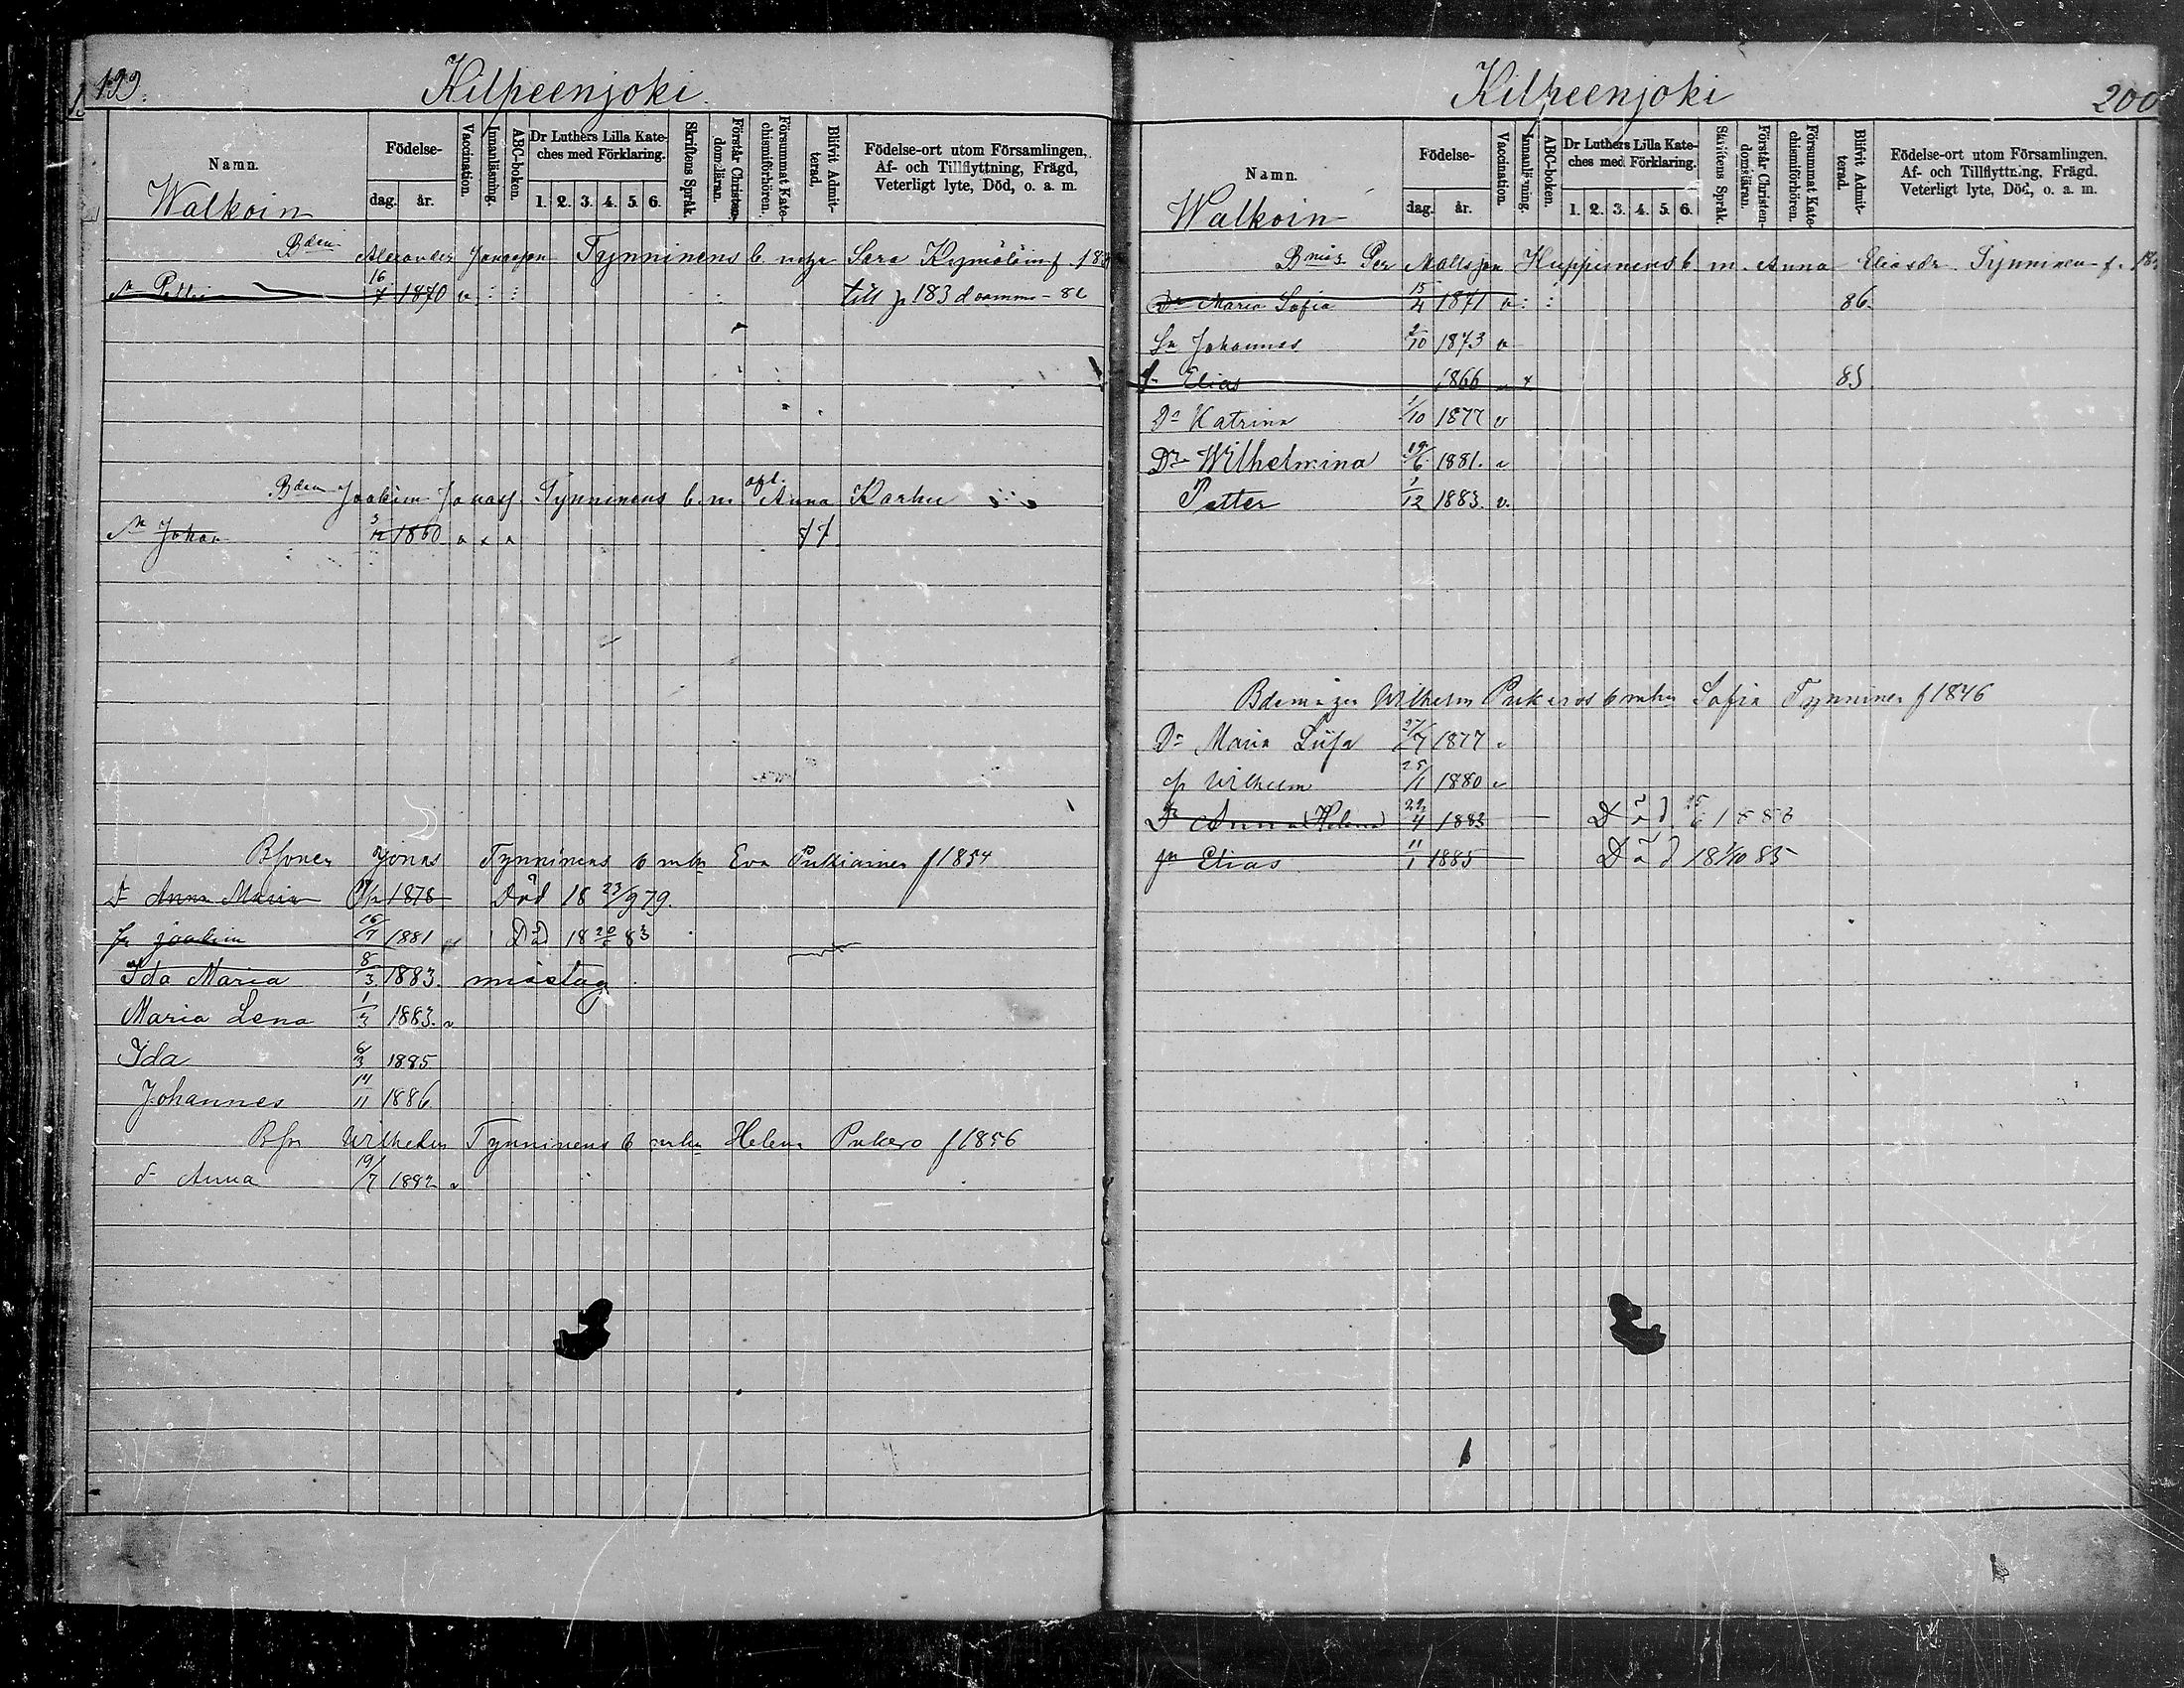 199.
Kilpeenjoki
Namn.
Födelse-
dag. år.
Vaccination.
Innanläsning.
ABC-boken.
Dr Luthers Lilla Kate-
ches med Förklaring.
1. 2. 3. 4. 5. 6.
Skriftens Språk.
Förstår Christen-
domsläran.
Försummat Kate-
chismiförhören.
Blifvit Admit-
terad.
Födelse-ort utom Församlingen,
Af- och Tillflyttning, Frägd,
Veterligt lyte, Död, o. a. m.
Walkoin
Bden Alexander Jonasson Tynninens b. Sara f. 18
16/7 1870 v till p 183 - 86
Bden Joakim Jonas Tynninens b. m. afl. Anna Karhu
Sn Johan 3/12 1860 77
Bsonen Jonas Tynninens b mhu Eva Pukiainen f 1854
D Anna Maria 1878 Död 18 23/9 79.
Sn Joakim 16/7 1881 Död 18 20/ 83
Ida Maria 8/3 1883. misstag
Maria Lena 1/3 1883. v
Ida 6/3 1885
Johannes 14/11 1886
Bsn Wilhelm Tynninens b mhu Helena Pukero f 1856
d Anna 19/7 1882 v
Kilpeenjoki
200
Namn.
Födelse-
dag. år.
Vaccination.
Innanläsning.
ABC-boken.
Dr Luthers Lilla Kate-
ches med Förklaring.
1. 2. 3. 4. 5. 6.
Skriftens Språk.
Förstår Christen-
domsläran.
Försummat Kate-
chismiförhören.
Blifvit Admit-
terad.
Födelse-ort utom Församlingen,
Af- och Tillflyttning, Frägd,
Veterligt lyte, Död, o. a. m.
Walkoin
Bmåg. Per Mattsson Huppinens b m. Anna Eliasdr Tynninen f. 18
Dr Maria Sofia 15/4 1871 v 86.
Sn Johannes 2/10 1873 v
Elias 1866 85
Dr Katrina 1/10 1877 v
Dr Wilhelmina 19/6 1881. v
Petter 1/12 1883. v.
Bdemågen Wilhelm Pukeros b mhu Sofia Tynninen f 1846
Dr Maria Liisa 27/7 1877 v
Wilhelm 25/1 1880 v
Dr Anna Helena 22/4 1883 Död
Sn Elias 11/1 1885 Död 18 1/10 85